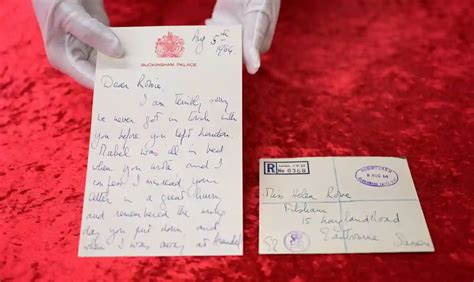 Aug 5th
1964
BUCKINGHAM PALACE
Dear Rosie,
I am terribly sorry
we never got in touch with
you before you left London
Mabel was all in bed
when you wrote and I
confess I misread your
letter in a great hurry
and remembered the wrong
day you put down and
when I was away at Arundel
R
No 8368
BUCKINGHAM PALACE
Miss Helen Rowe
15
Road
Eastbourne
Sussex